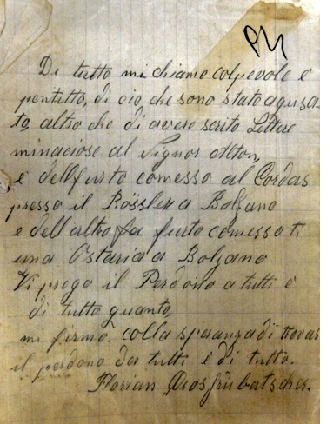 Di tutto mi chiamo colpevole e
pentitto, di cio, che sono stato aqusa
to altro che di avere scrito Lettere
minaciose al Signor
e dell furto comesso al Cordas
presso il Rössler a Bolsano
e dell altro furto comesso ti
una Ostaria a Bolzano
Vi prego il Perdono a tutti e
di tutto quanto,
mi firmo colla speranza di trovar
il perdono da tutti e di tutto.
Florian